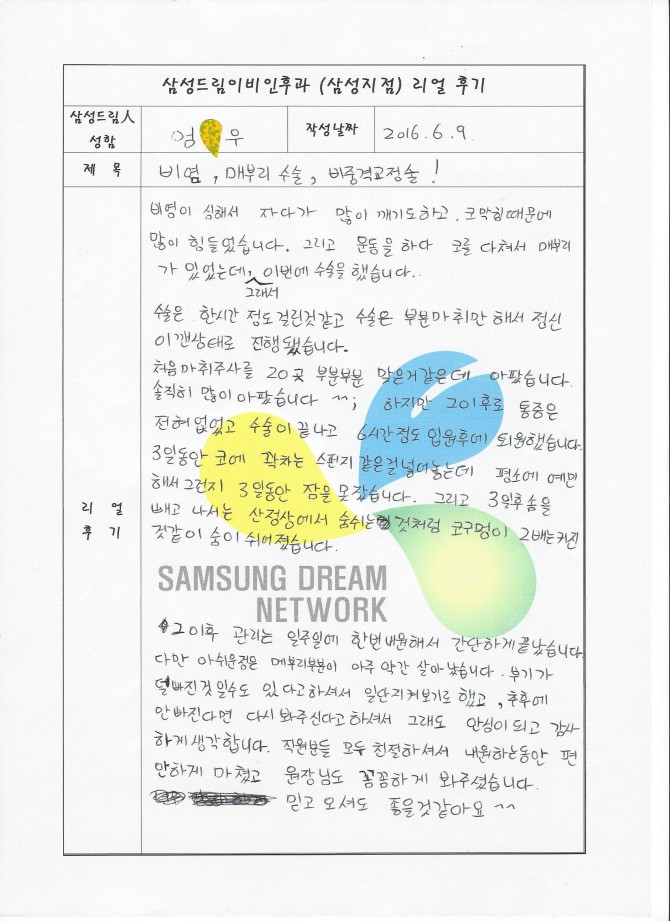 삼성드림이비인후과 (삼성지점) 리얼 후기
삼성드림人
성함
엄 우
작성날짜
2016.6.9.
제 목
비염, 매부리 수술, 비중격교정술!
리 얼
후 기
비염이 심해서 자다가 많이 깨기도하고, 코막힘때문에
많이 힘들었습니다. 그리고 운동을 하다 코를 다쳐서 매부리
가 있었는데, 그래서 이번에 수술을 했습니다..
수술은 한시간 정도걸린것같고 수술은 부분마취만 해서 정신
이깬상태로 진행됐습니다.
처음마취주사를 20곳 부분부분 맞은거같은데 아팠습니다.
솔직히 많이아팠습니다 ^^; 하지만 그이후로 통증은
전혀없었고 수술이 끝나고 6시간정도 입원후에 퇴원했습니다.
3일동안 코에 꽉차는 스펀지 같은걸넣어놓는데 평소에 예민
해서그런지 3일동안 잠을못잤습니다. 그리고 3일후솜을
빼고 나서는 산정상에서 숨쉬는 것처럼 코구멍이 2배는커진
것같이 숨이 쉬어졌습니다.
SAMSUNG DREAM
NETWORK
그이후 관리는 일주일에 한번내원해서 간단하게끝났습니다.
다만 아쉬운점은 메부리부분이 아주 약간 살아났습니다. 부기가
덜빠진것일수도 있다고하셔서 일단지켜보기로했고, 추후에
안빠진다면 다시봐주신다고하셔서 그래도 안심이되고 감사
하게생각합니다. 직원분들 모두친절하셔서 내원하는동안 편
안하게 마쳤고 원장님도 꼼꼼하게 봐주셨습니다.
믿고 오셔도 좋을것같아요 ^^